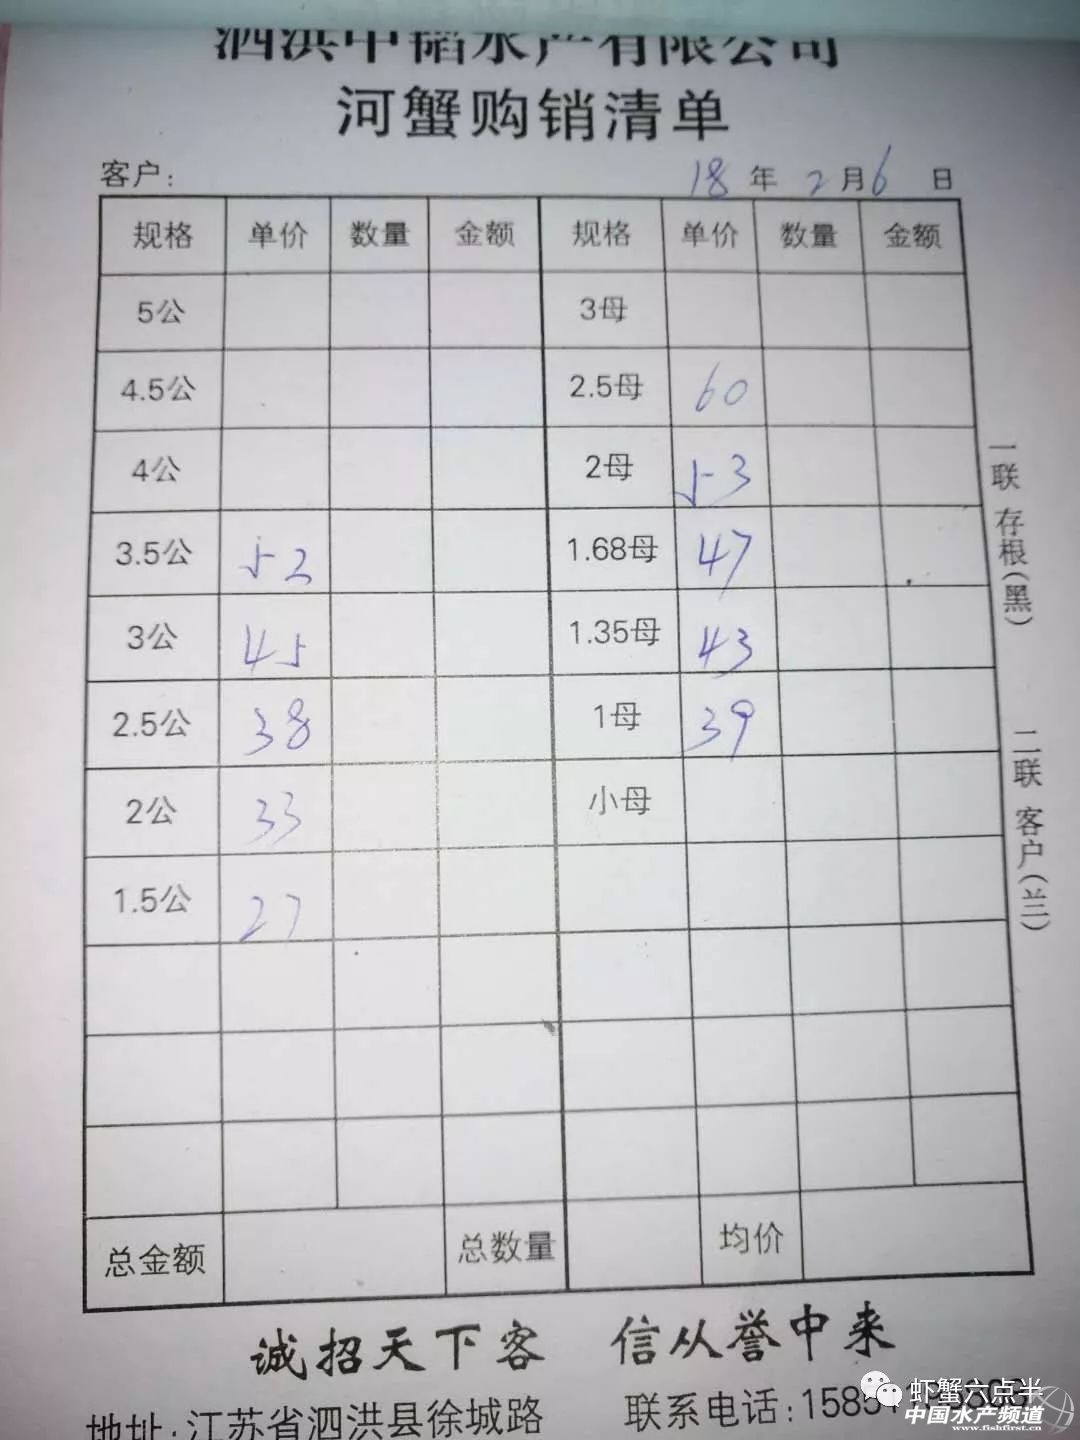 泗洪中韬水产有限公司
河蟹购销清单
客户： 18年 2月6 日
规格 单价 数量 金额 规格 单价 数量 金额
5公 3母
4.5公 2.5母 60
4公 2母 53
3.5公 52 1.68母 47
3公 45 1.35母 43
2.5公 38 1母 39
2公 33 小母
1.5公 27
总金额 总数量 均价
一联 存根(黑) 二联 客户(兰)
诚招天下客 信从誉中来
地址:江苏省泗洪县徐城路 联系电话:1585
虾蟹六点半
中国水产频道
www.fishfirst.cn